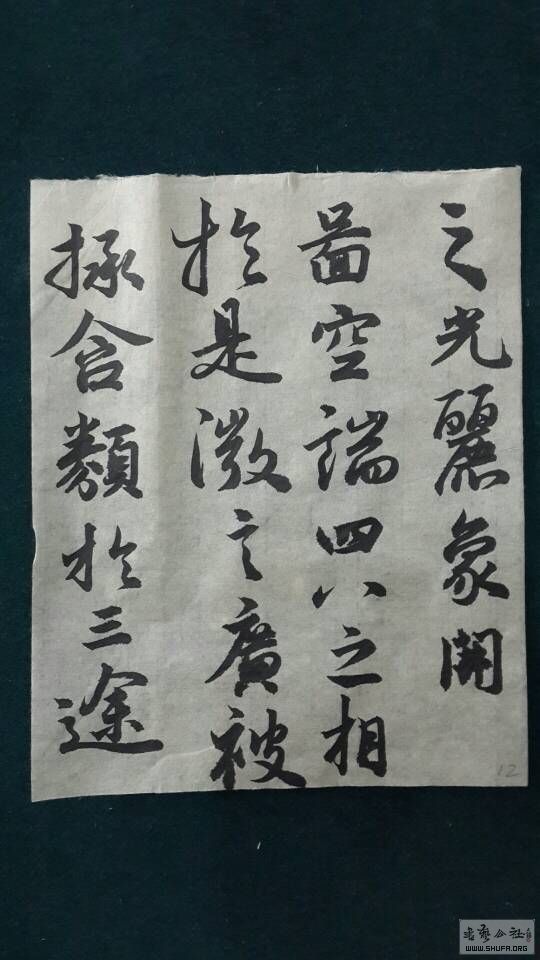 之光麗象開
啚空端四八之相
於是微言廣被
拯含類於三途
12
书艺公社
WWW.SHUFA.ORG